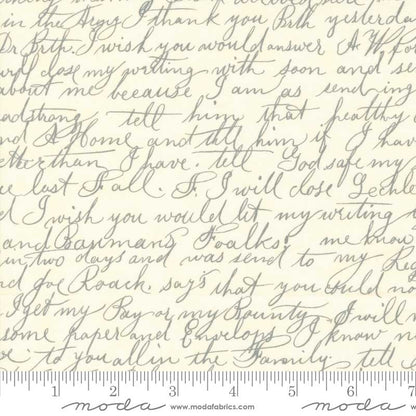 in the Army I thank you Beth yesterday
Dr. Beth. I wish you would answer A W for
will close my writing with soon and se
about me because I am as sending
adstrong tell him that healthy
nd A Home and tell him if I hav
etter than I have. tell God safe my
ce last Fall. F. I will close
d I wish you would let my writing
and Foalks, me know
in, two days and was send to my Reg
nd Joe Roack. says that you could no
I get my Pay or my Bounty I will
some paper and Envelops I know n
to you all in the Family. tell
1 2 3 4 5 6 7
moda www.modafabrics.com moda